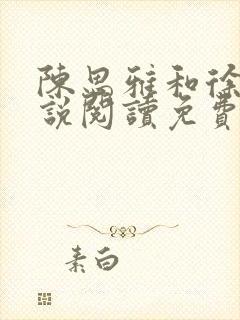 陳思雅和徐
說閱讀免費
素白